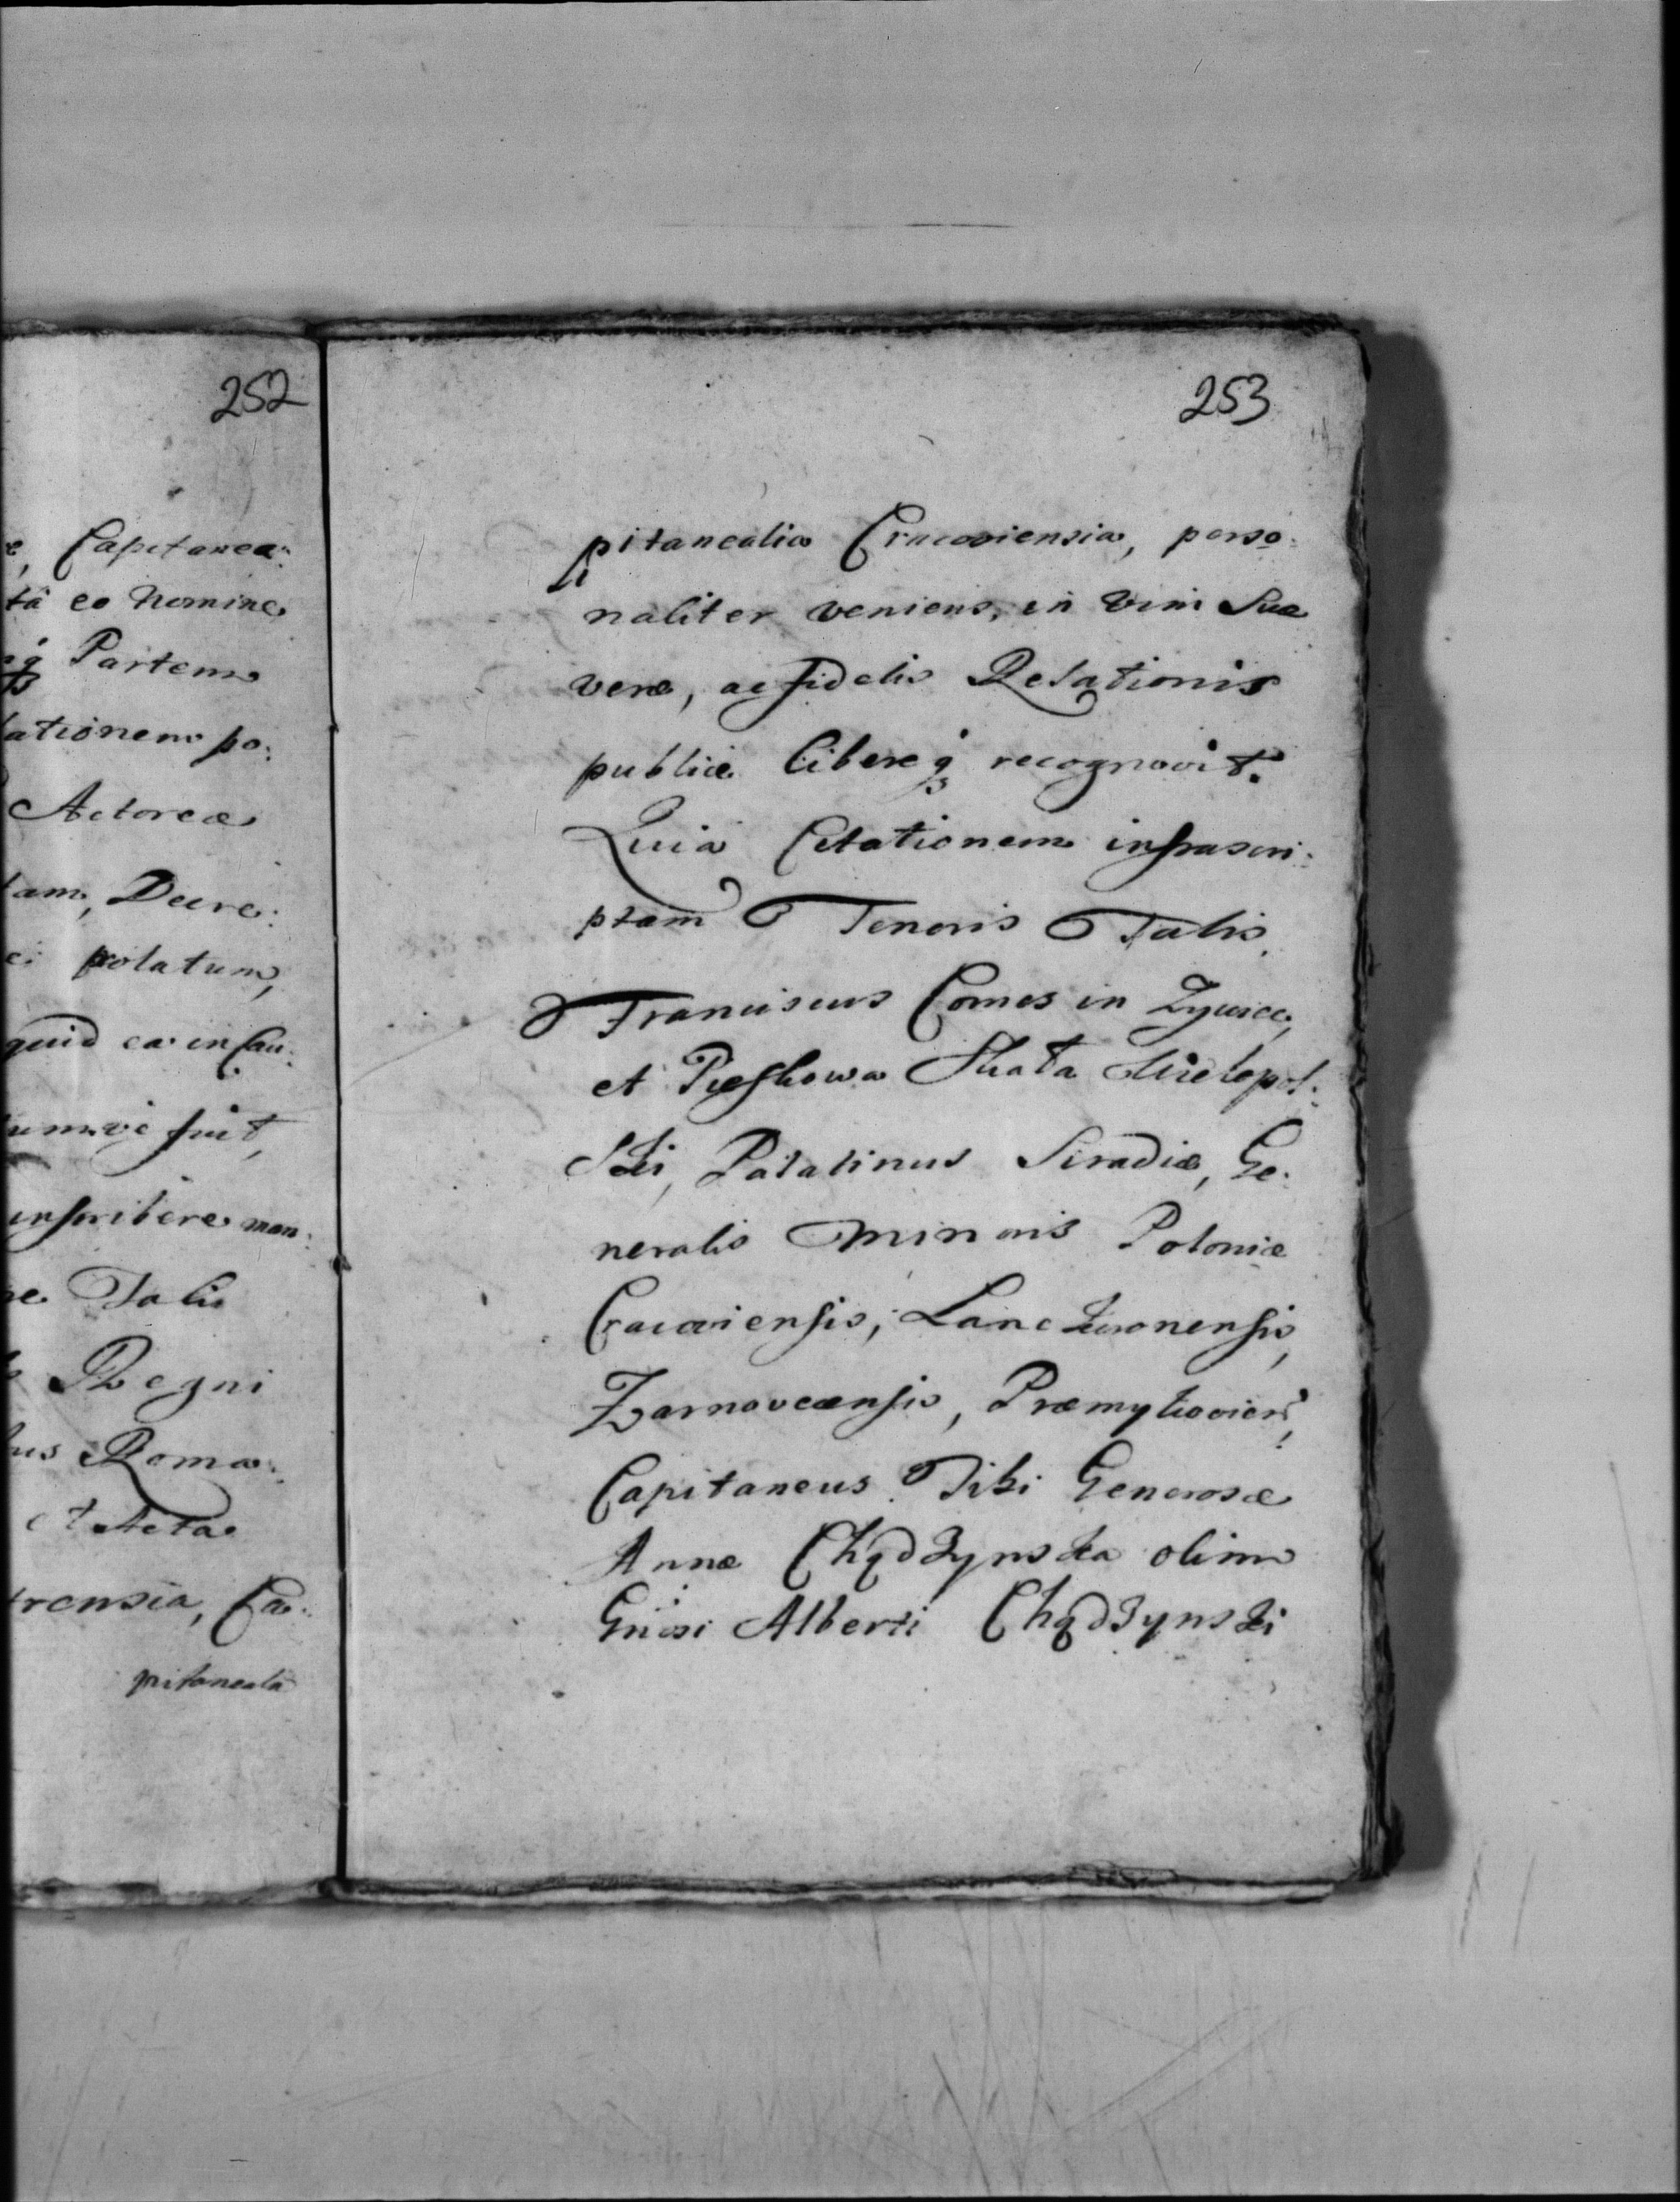 252
e, Capitanea:
tâ eo Nomine
Partem
lationem po:
Actorea
lam, Decre:
ei prolatum,
quid ea in Cau:
umve fuit,
inscribere man:
Talis
Regni
Roma:
et Acta
trensia, Ca:
pitanealia
253
pitanealia Cracoviensia, perso:
naliter veniens, in vim Suæ
veræ, ac fidelis Relationis
publice libereq recognovit.
Quia Citationem infrascri:
ptam Tenoris Talis.
Franciscus Comes in Zywiec,
et Pieskowa Skała Wielopol:
Ski, Palatinus Siradiæ, Ge:
neralis Minoris Poloniæ
Cracoviensis, Lanckoronensis,
Zarnoveensis, Præmykovien,
Capitaneus Tibi Generosæ
Annæ Chądzynska olim
Gnosi Alberti Chądzynski